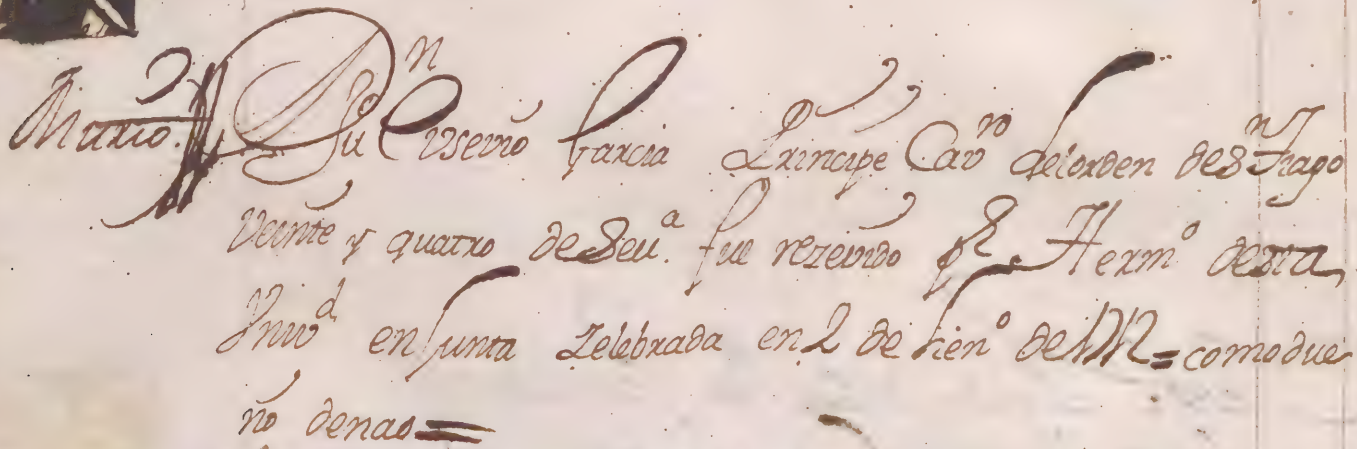 Murio. Dn Eusevio Garcia Principe Cavro del orden de Sn Tiago
Veinte y quatro de Seva. fue rezevido pr. Hermo desta
Univd en Junta Zelebrada en 2 de heno de 1712 = como due
ño de nao =